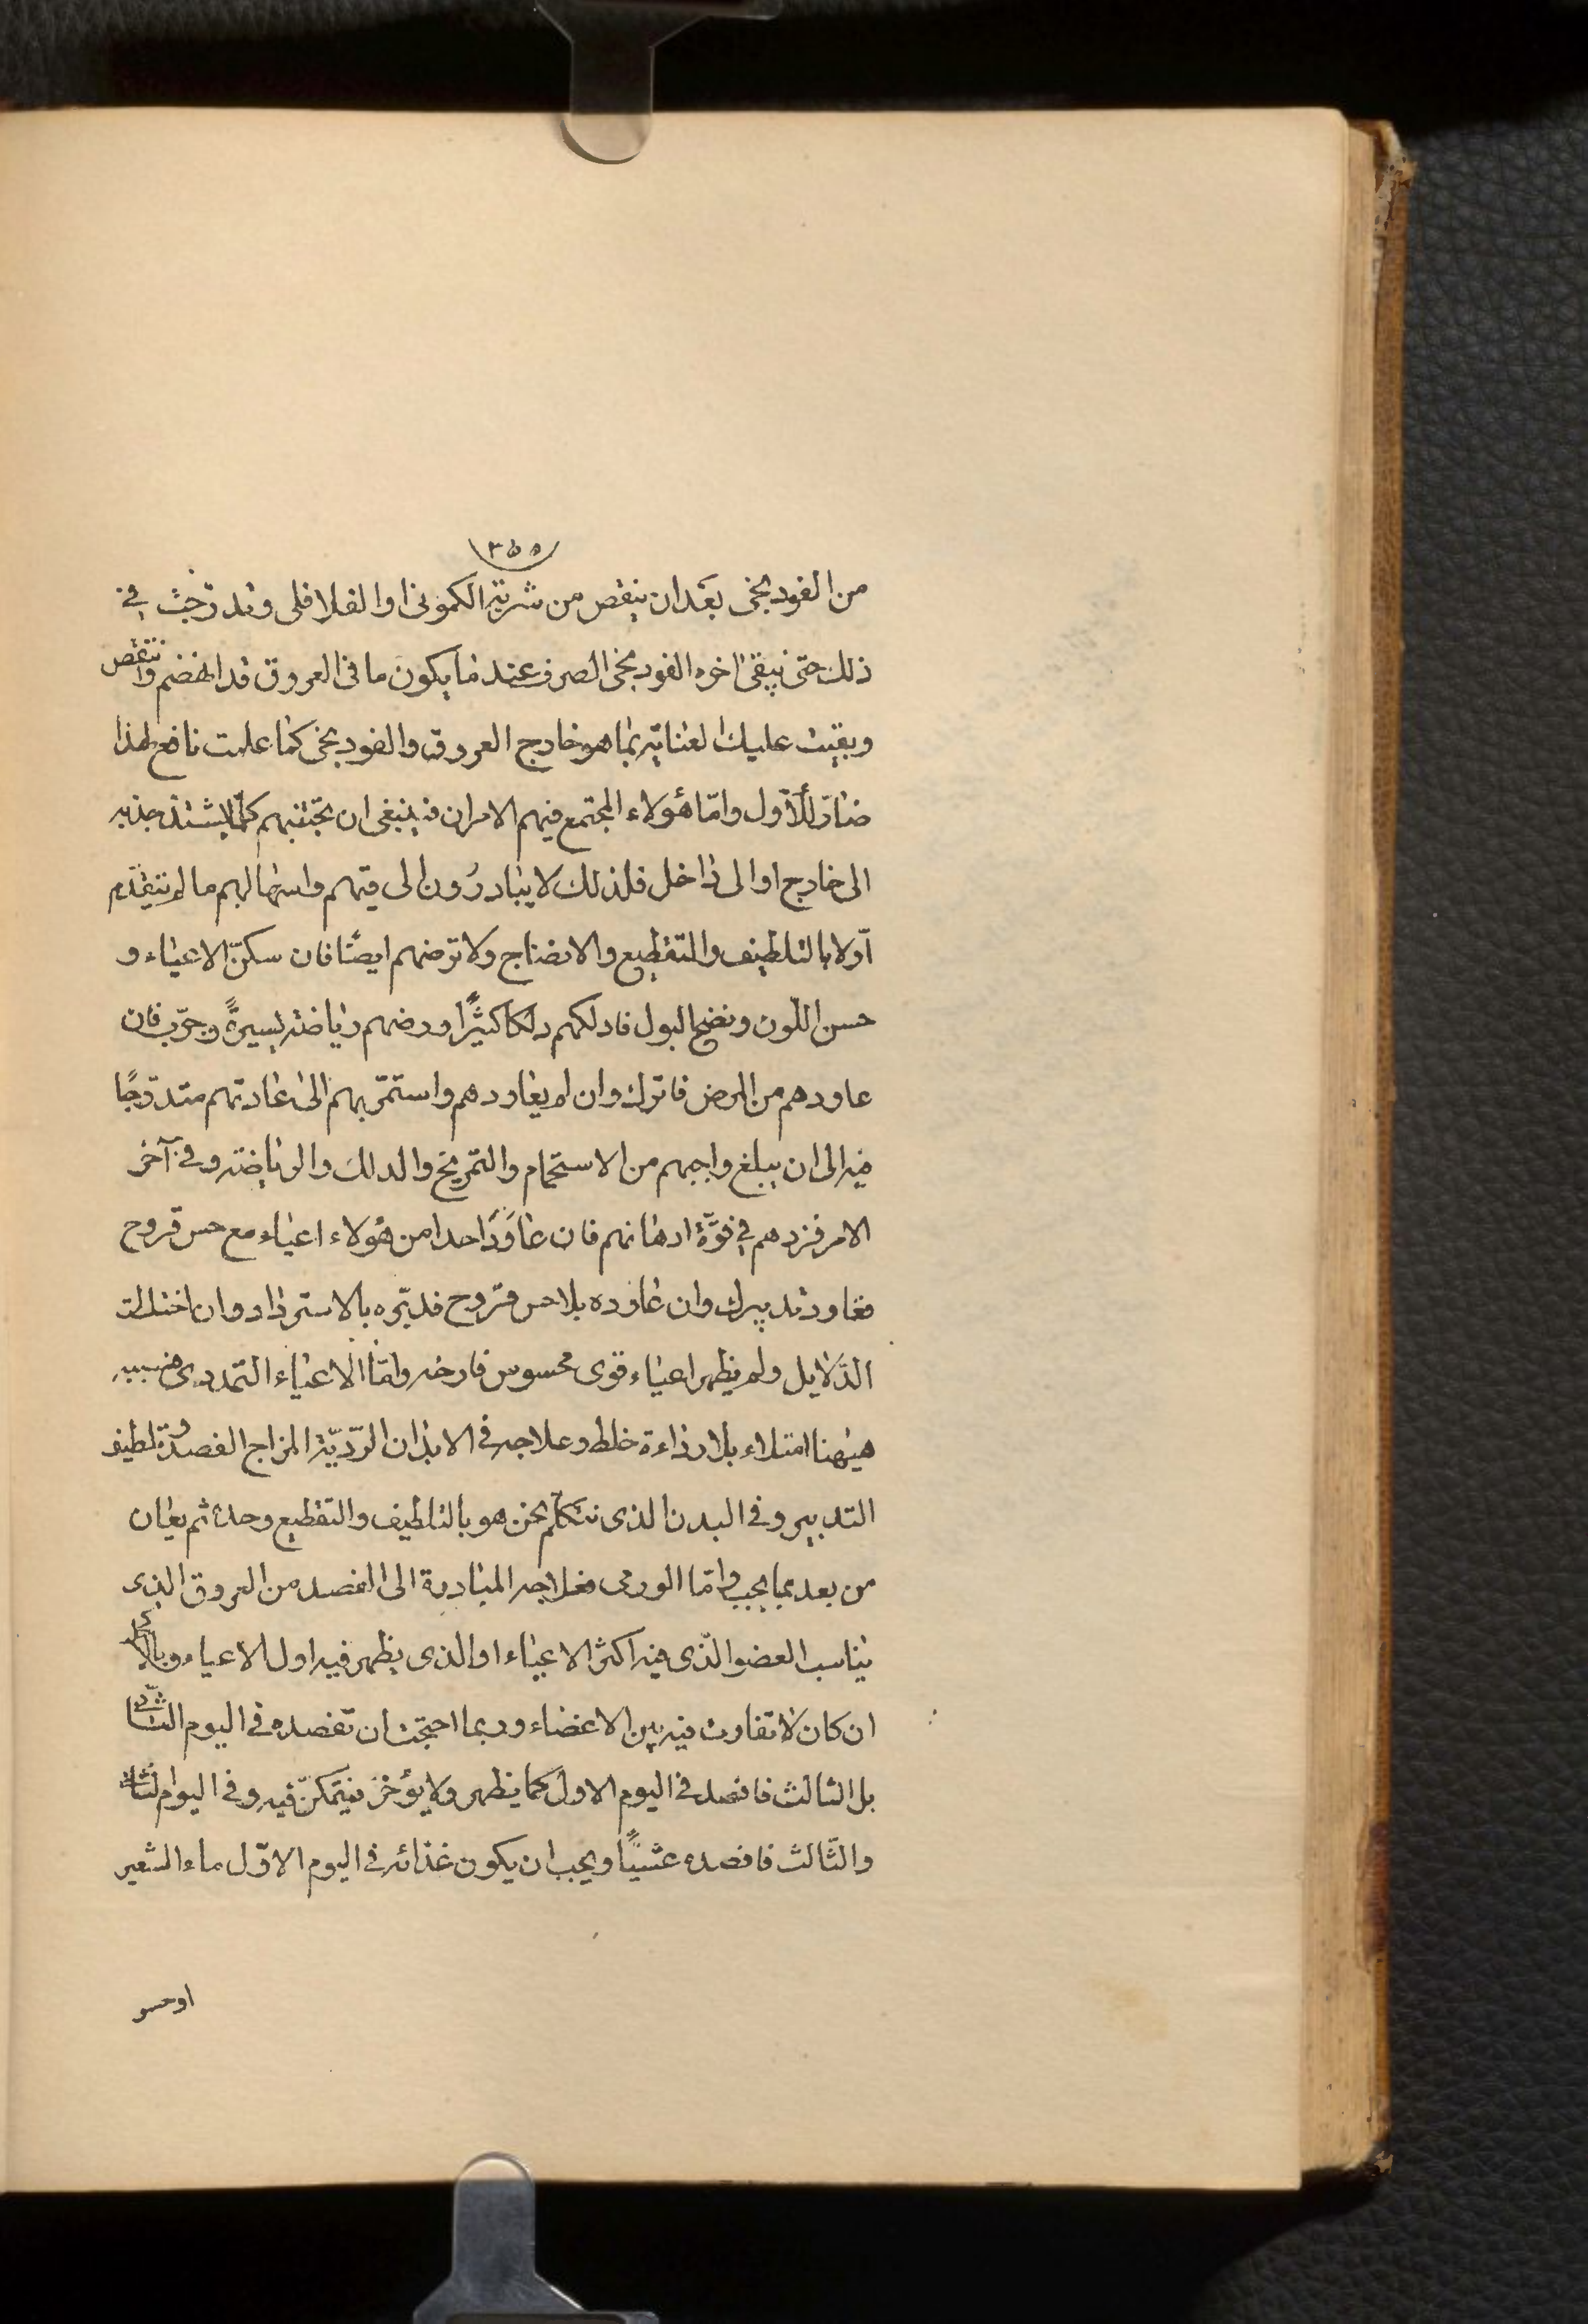 ٣٥٥
من الفودنجى بعد ان ينقص من شربة الكمونى او الفلافلى وتدرجت في
ذلك حتى يبقى اخره الفودنجى الصرف عند ما يكون ما فى العروق قد انهضم وانتقص
وبقيت عليك العناية بما هو خارج العروق والفودنجى كما علمت نافع لهذا
ضار للأول وامّا هؤلاء المجتمع فيهم الامران فينبغى ان تجنبهم كلما يشتد جذبه
الى خارج او الى داخل فلذلك لا يبادرون الى قيهم واسهالهم ما لم يتقدم
اوّلا بالتلطيف والتقطيع والانضاج ولا ترضهم ايضًا فان سكن الاعياء و
حسن اللّون ونضج البول فادلكهم دلكا كثيرًا ورضهم رياضة يسيرةً وجرّب فان
عاودهم من المرض فاترك وان لم يعاودهم واستمر بهم الى عادتهم متدرّجًا
فيه الى ان يبلغ واجبهم من الاستحمام والتمريخ والدلك والرياضة وفى آخر
الامر فزدهم في قوّة ادهانهم فان عاوَدَ احدا من هؤلاء اعياء مع حس قروح
فعاود تدبيرك وان عاوده بلا حس قروح فدبّره بالاسترداد وان اختلطت
الدّلايل ولم يظهر اعياء قوى محسوس فارحه وامّا الاعياء التمددى فسببه
هيهنا امتلاء بلا رداءة خلط وعلاجه فى الابدان الرّديّة المزاج الفصد وتلطيف
التدبير وفى البدن الذى نتكلم نحن هو بالتلطيف والتقطيع وحده ثم يعان
من بعد بما يجب وامّا الورمى فعلاجه المبادرة الى الفصد من العروق الذى
يناسب العضو الّذى فيه اكثر الاعياء او الذى يظهر فيه اول الاعياء وبالاكحل
ان كان لا تفاوت فيه بين الاعضاء وربما احتجت ان تفصده فى اليوم الثّانى
بل الثالث فافصد فى اليوم الاول كما يظهر ولا يؤخر فيتمكّن فيه وفى اليوم الثانى
والثّالث فافصده عشيًّا ويجب ان يكون غذائه فى اليوم الاوّل ماء الشعير
او حسو